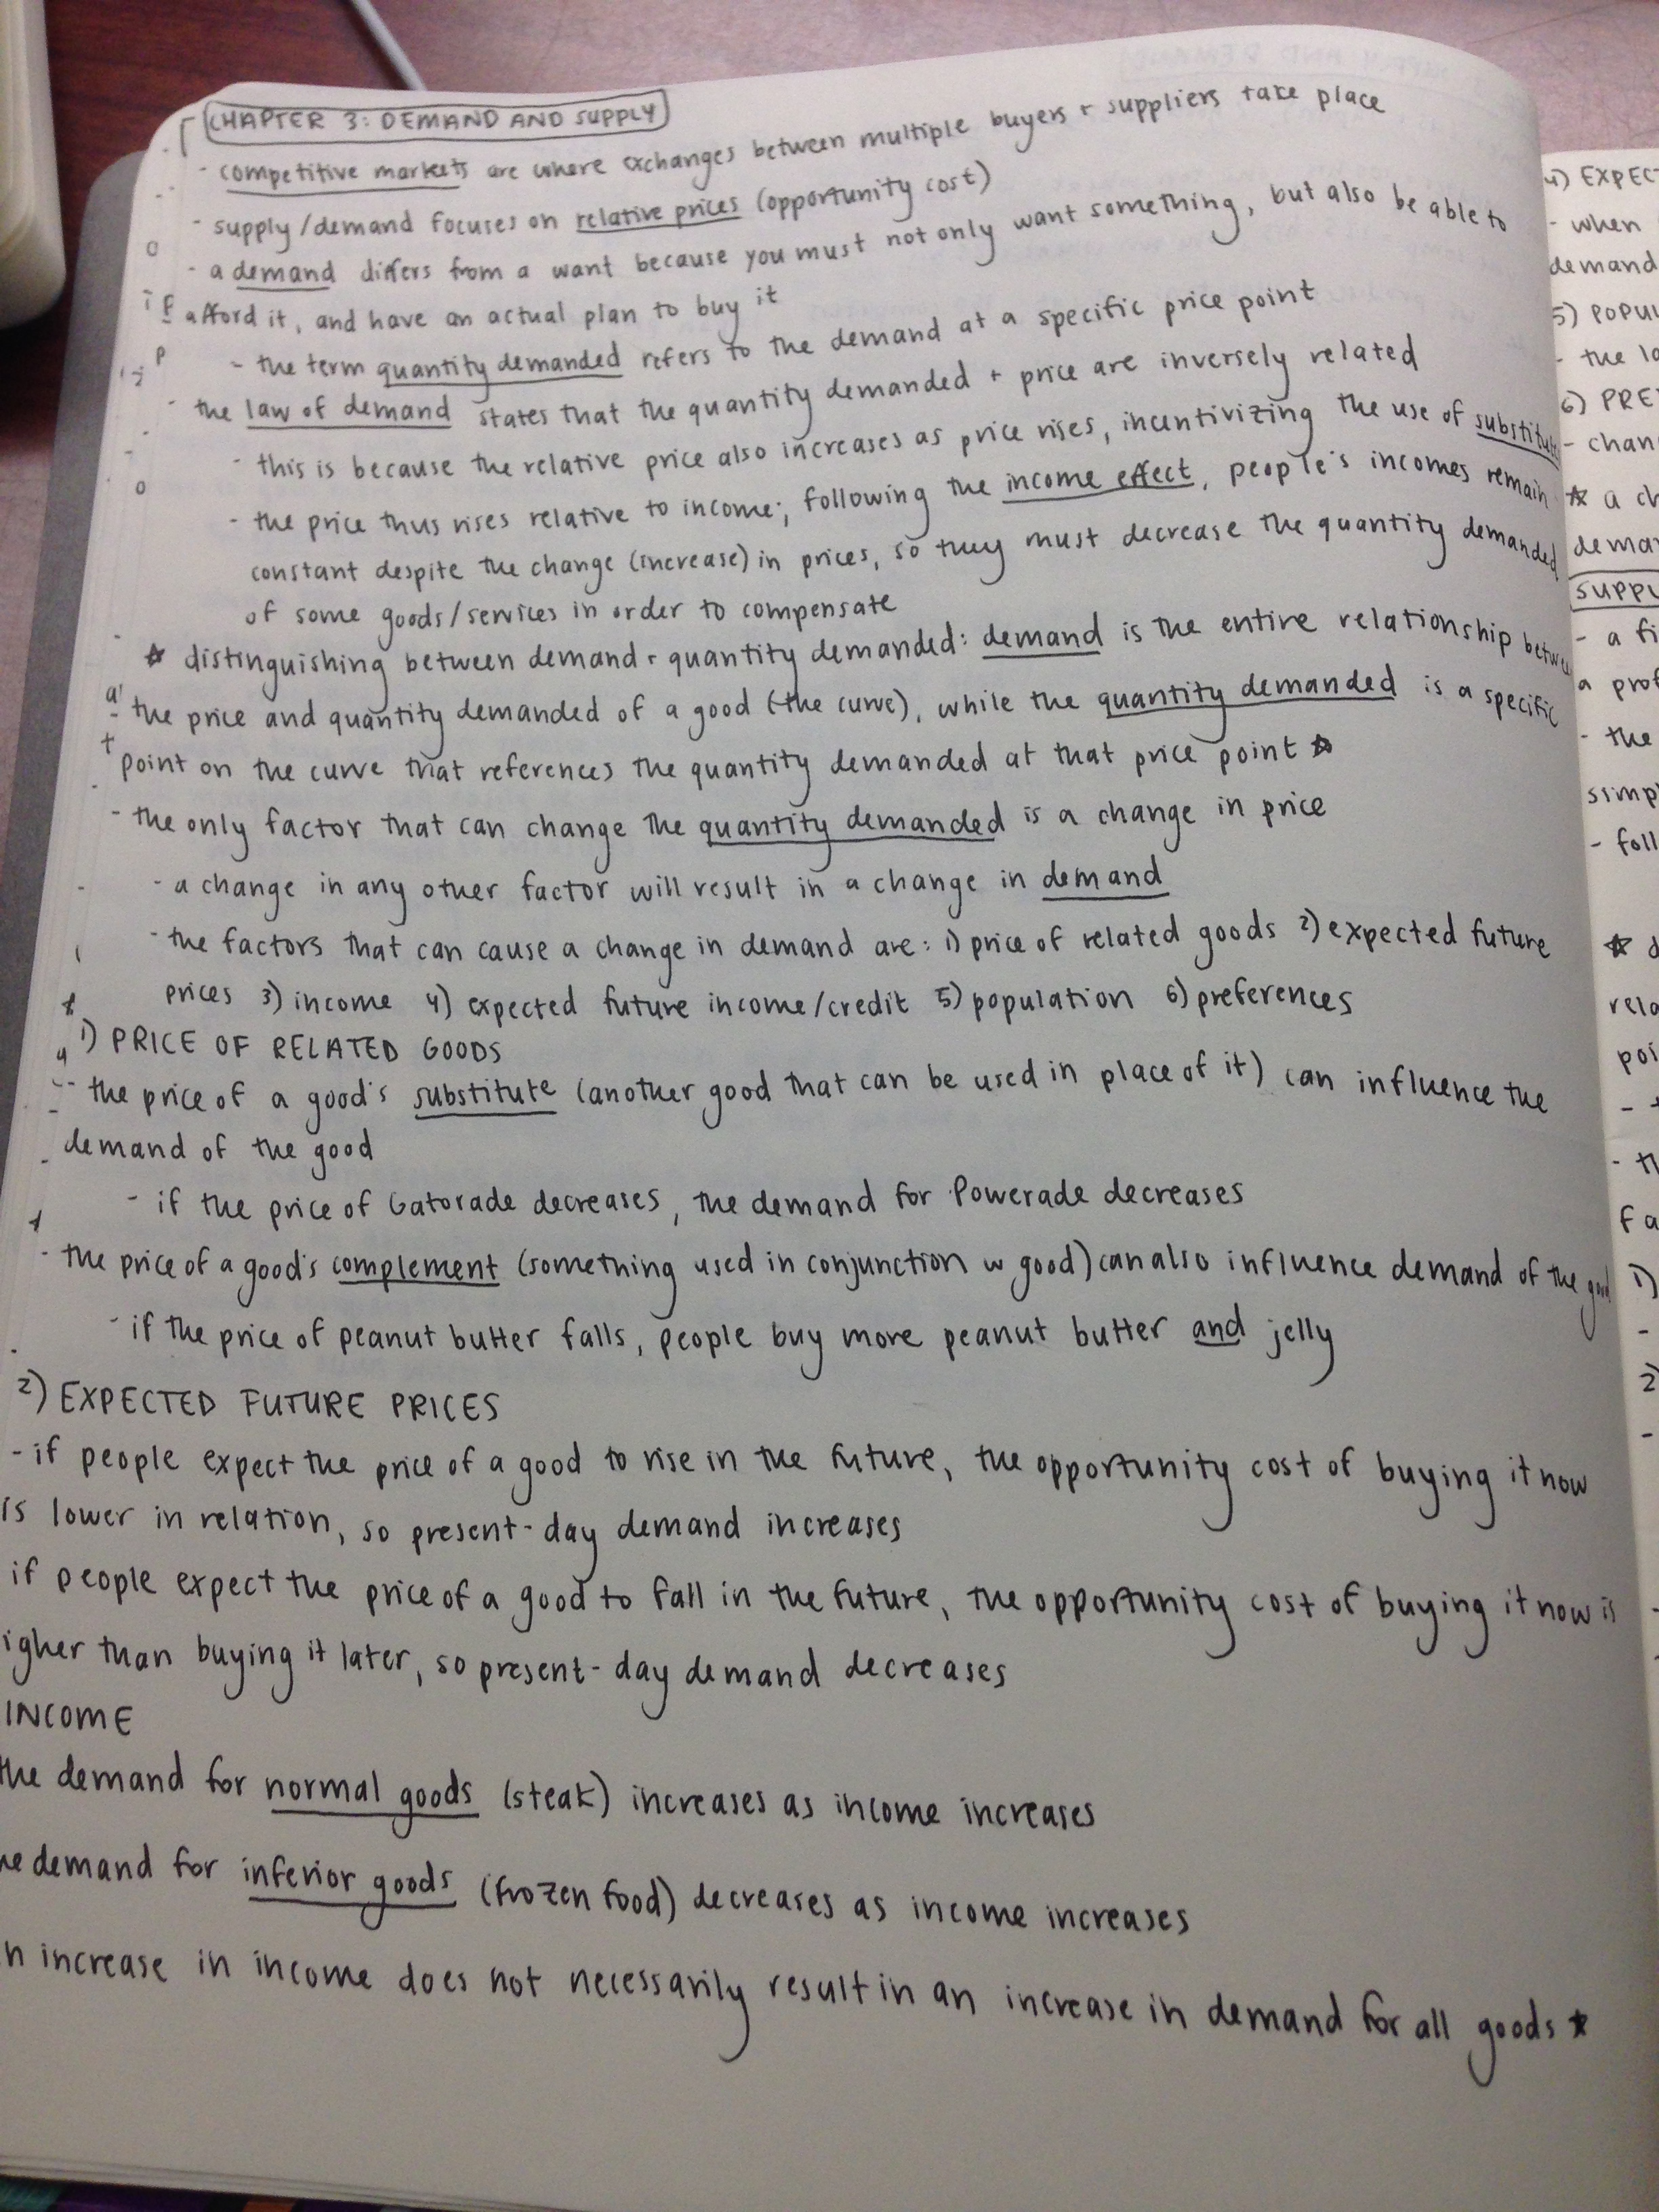 CHAPTER 3: DEMAND AND SUPPLY
- competitive markets are where exchanges between multiple buyers + suppliers take place
- supply/demand focuses on relative prices (opportunity cost)
- a demand differs from a want because you must not only want something, but also be able to
afford it, and have an actual plan to buy it
- the term quantity demanded refers to the demand at a specific price point
- the law of demand states that the quantity demanded + price are inversely related
- this is because the relative price also increases as price rises, incentivizing the use of
- the price thus rises relative to income; following the income effect, people's incomes remain
constant despite the change (increase) in prices, so they must decrease the quantity demanded
of some goods/services in order to compensate
☆ distinguishing between demand + quantity demanded: demand is the entire relationship
the price and quantity demanded of a good (the curve), while the quantity demanded is a specific
point on the curve that references the quantity demanded at that price point ☆
- the only factor that can change the quantity demanded is a change in price
- a change in any other factor will result in a change in demand
- the factors that can cause a change in demand are: 1) price of related goods 2) expected future
prices 3) income 4) expected future income/credit 5) population 6) preferences
1) PRICE OF RELATED GOODS
- the price of a good's substitute (another good that can be used in place of it) can influence the
demand of the good
- if the price of Gatorade decreases, the demand for Powerade decreases
- the price of a good's complement (something used in conjunction w good) can also influence demand of the good
- if the price of peanut butter falls, people buy more peanut butter and jelly
2) EXPECTED FUTURE PRICES
- if people expect the price of a good to rise in the future, the opportunity cost of buying it now
is lower in relation, so present-day demand increases
if people expect the price of a good to fall in the future, the opportunity cost of buying it now is
igher than buying it later, so present-day demand decreases
INCOME
the demand for normal goods (steak) increases as income increases
he demand for inferior goods (frozen food) decreases as income increases
n increase in income does not necessarily result in an increase in demand for all goods ☆
4) EXPECT
- when
demand
5) POPU
- the
6) PRE
- chan
☆ a ch
dema
SUPPL
- a fi
a prof
- the
simp
- foll
☆ d
rela
poi
-
- th
fa
1)
-
2)
-